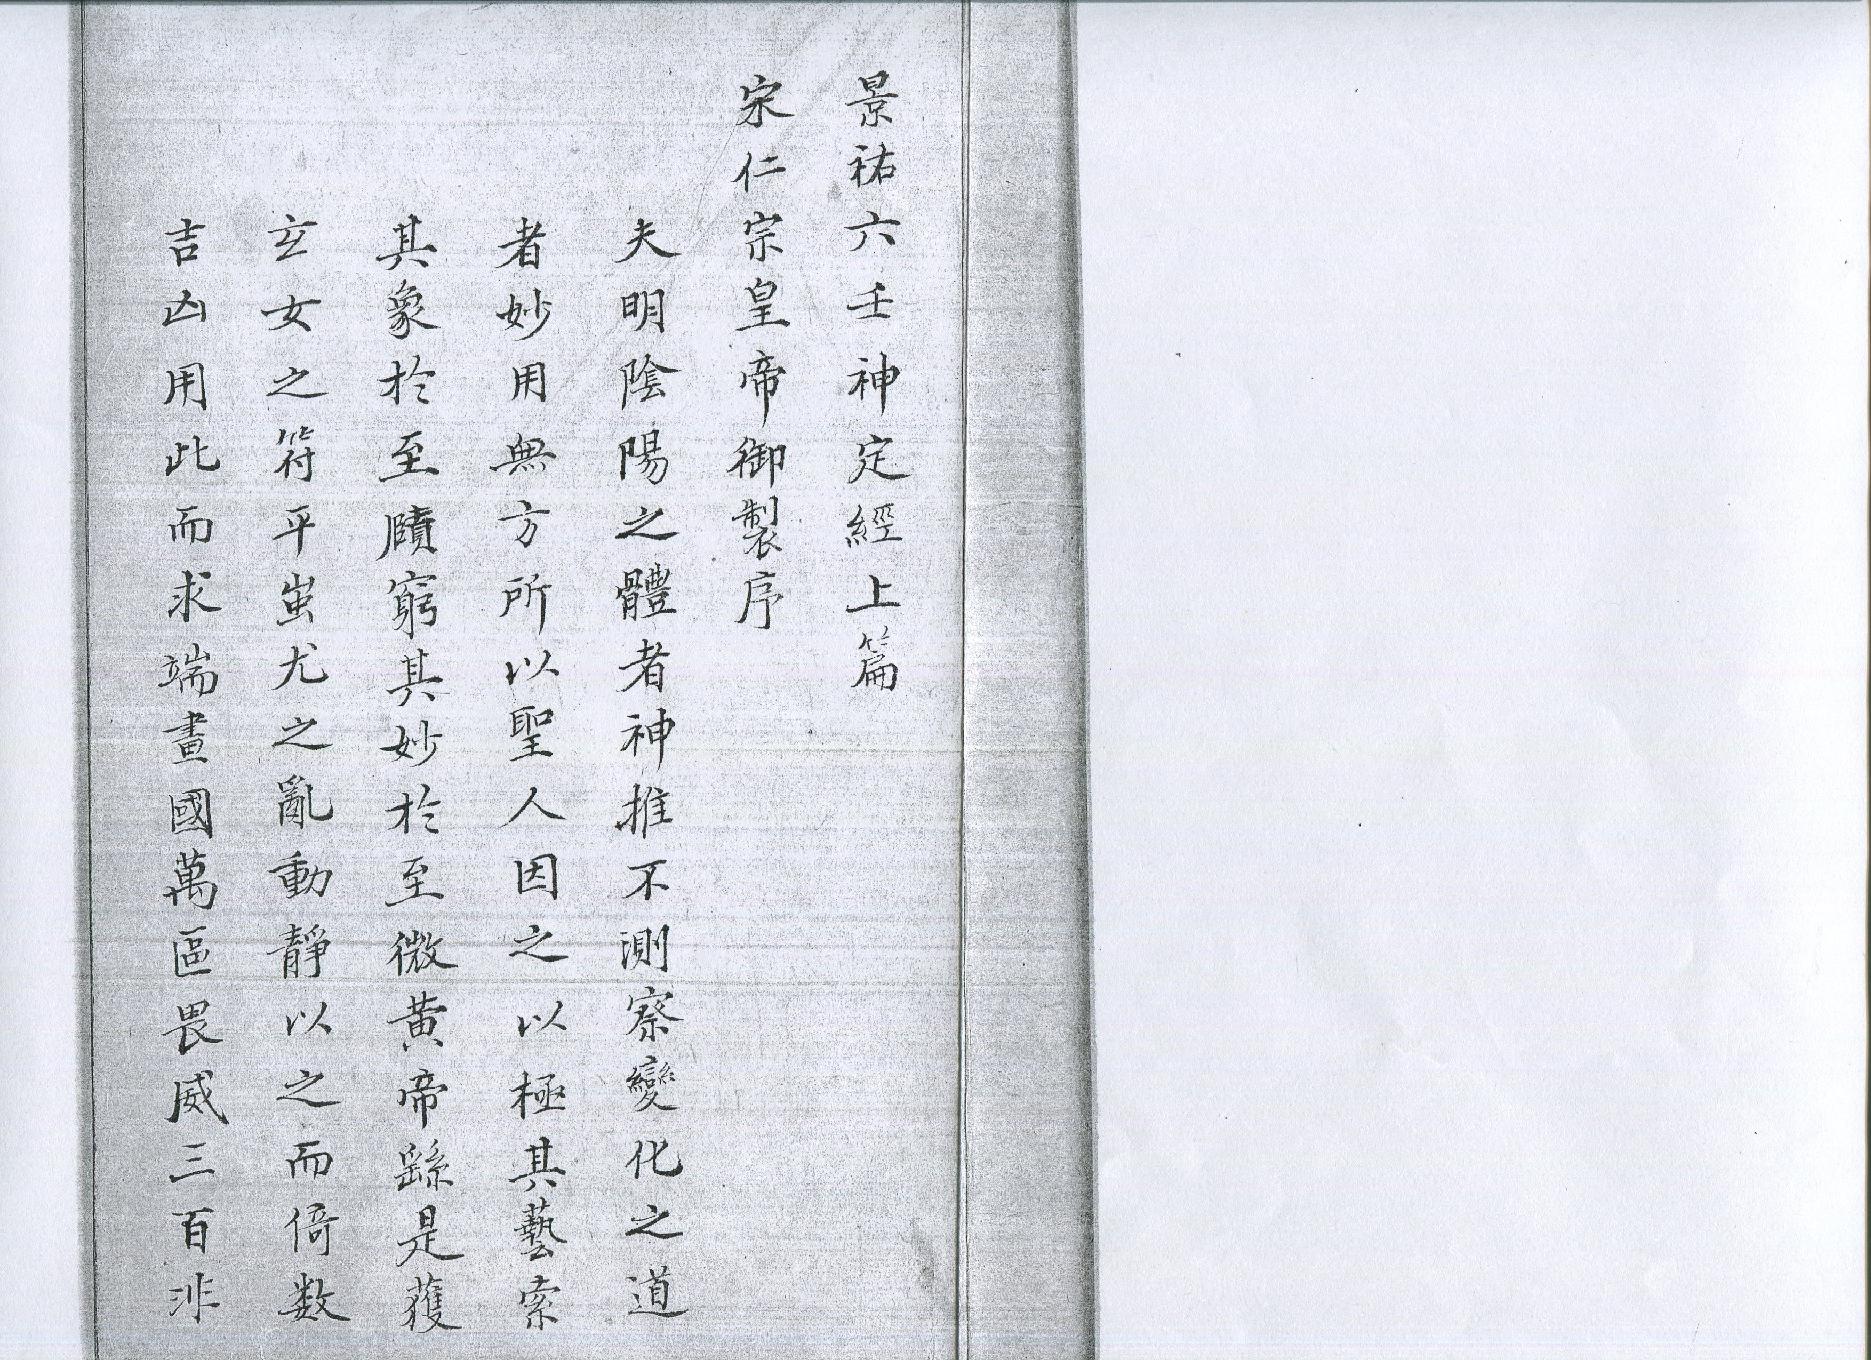 景祐六壬神定經上篇
宋仁宗皇帝御製序
夫明陰陽之體者神推不測察變化之道
者妙用無方所以聖人因之以極其藝索
其象於至賾窮其妙於至微黄帝繇是獲
玄女之符平蚩尤之亂動靜以之而倚数
吉凶用此而求端畫國萬區畏威三百非